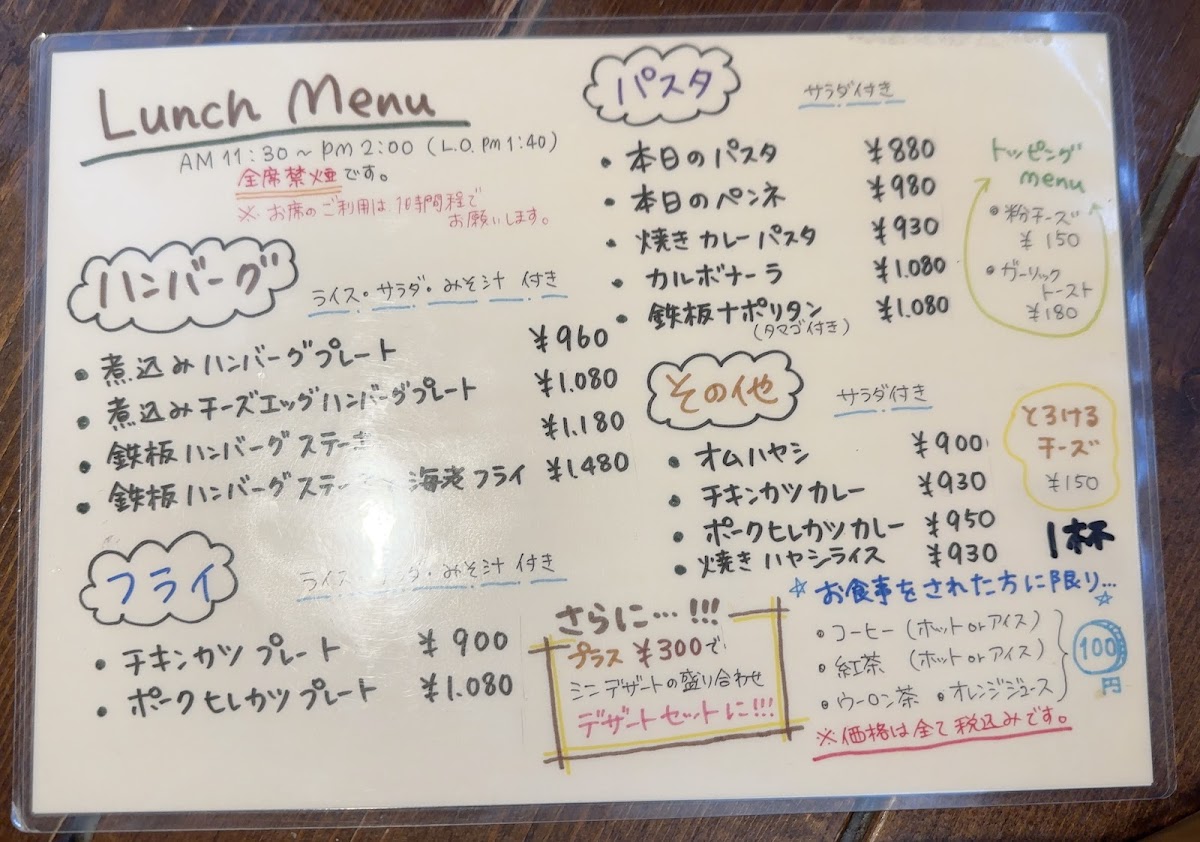 Lunch Menu
AM 11:30~PM 2:00 (L.O. PM 1:40)
全席禁煙です。
※お席のご利用は1時間程で
お願いします。
ハンバーグ
ライス・サラダ・みそ汁 付き
・煮込みハンバーグプレート ¥960
・煮込みチーズエッグハンバーグプレート ¥1.080
・鉄板ハンバーグステーキ ¥1.180
・鉄板ハンバーグステー 海老フライ ¥1.480
フライ
ライス ダ・みそ汁 付き
・チキンカツプレート ¥900
・ポークヒレカツプレート ¥1.080
パスタ
サラダ付き
・本日のパスタ ¥880
・本日のペンネ ¥980
・焼きカレーパスタ ¥930
・カルボナーラ ¥1.080
・鉄板ナポリタン ¥1.080
(タマゴ付き)
トッピング
menu
・粉チーズ
¥150
・ガーリック
トースト
¥180
その他
サラダ付き
・オムハヤシ ¥900
・チキンカツカレー ¥930
・ポークヒレカツカレー ¥950
・焼きハヤシライス ¥930
とろける
チーズ
¥150
さらに…!!!
プラス¥300で
ミニデザートの盛り合わせ
デザートセットに!!!
1杯
☆お食事をされた方に限り…☆
・コーヒー(ホットorアイス)
・紅茶 (ホットorアイス)
・ウーロン茶 ・オレンジジュース
100
円
※価格は全て税込みです。